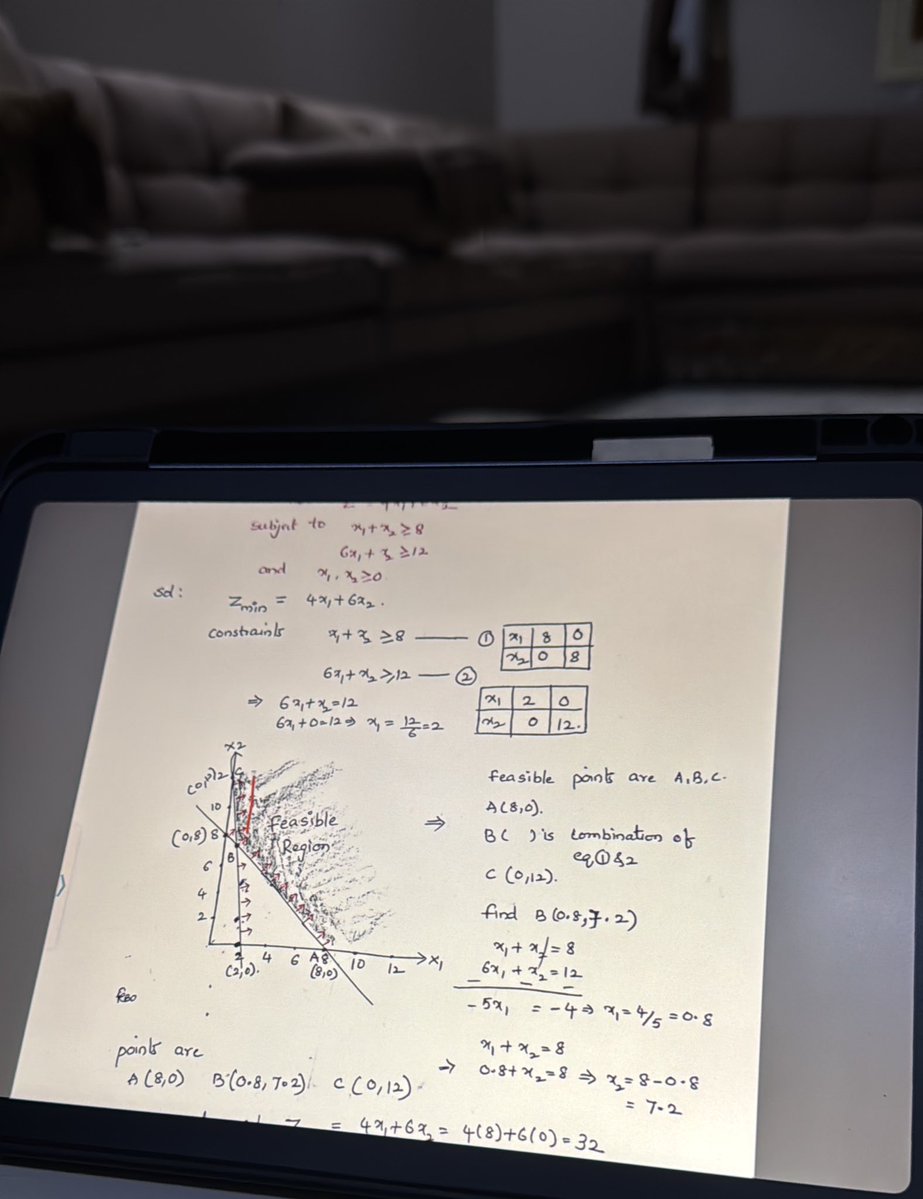 subject to x₁+x₂≥8
6x₁+x₂≥12
and x₁,x₂≥0.
sol:
Zmin = 4x₁+6x₂.
constraints x₁+x₂≥8 —— ①
x₁ 8 0
x₂ 0 8
6x₁+x₂≥12 — ②
⇒ 6x₁+x₂=12
6x₁+0=12⇒ x₁=12/6=2
x₁ 2 0
x₂ 0 12.
x2
C
10
(0,8) 8
B
6
4
2
Feasible
Region
2 4 6 A8 10 12 →x₁
(2,0). (8,0)
⇒
feasible points are A,B,C.
A(8,0).
B( ) is combination of
eq①&2
C (0,12).
find B(0.8,7.2)
x₁+x₂=8
6x₁+x₂=12
-5x₁ = -4⇒ x₁=4/5=0.8
→ x₁+x₂=8
0.8+x₂=8 ⇒ x₂=8-0.8
= 7.2
points are
A(8,0) B(0.8,7.2) C(0,12)
= 4x₁+6x₂= 4(8)+6(0)=32